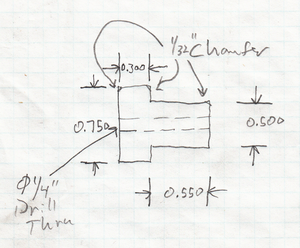 1/32" Chamfer
0.300
0.750
0.500
Φ1/4"
Drill
Thru
0.550